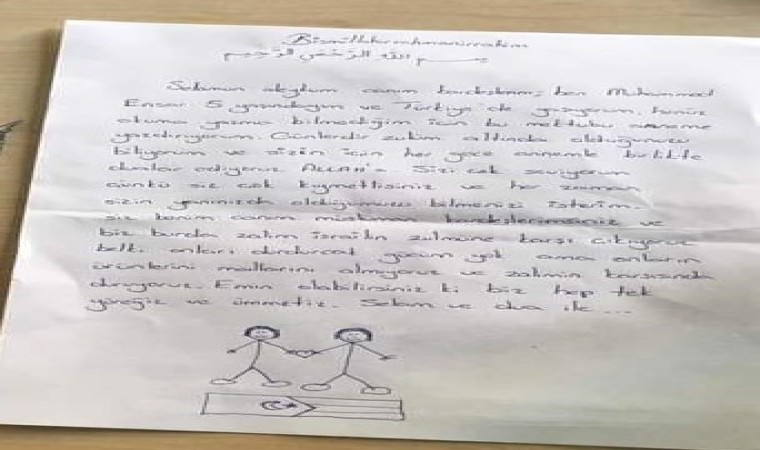 Bismillahirrahmanirrahim
بسم الله الرحمن الرحيم
Selamun aleyküm canım kardeşlerim, ben Muhammed
Ensar 5 yaşındayım ve Türkiye'de yaşıyorum. henüz
okuma yazma bilmediğim için bu mektubu anneme
yazdırıyorum. Günlerdir zulüm altında olduğunuzu
biliyorum ve sizin için her gece annemle birlikte
dualar ediyoruz ALLAH'a. Sizi çok seviyorum
Çünkü siz çok kıymetlisiniz ve her zaman
sizin yanınızda olduğumuzu bilmenizi isterim.
siz benim canım müslüman kardeşlerimsiniz ve
biz burda zalim israilin zulmüne karşı çıkıyoruz
belki onları durduracak gücüm yok ama onların
ürünlerini mallarını almıyoruz ve zalimin karşısında
duruyoruz. Emin olabilirsiniz ki biz hep tek
yüreğiz ve ümmetiz. Selam ve dua ile ...